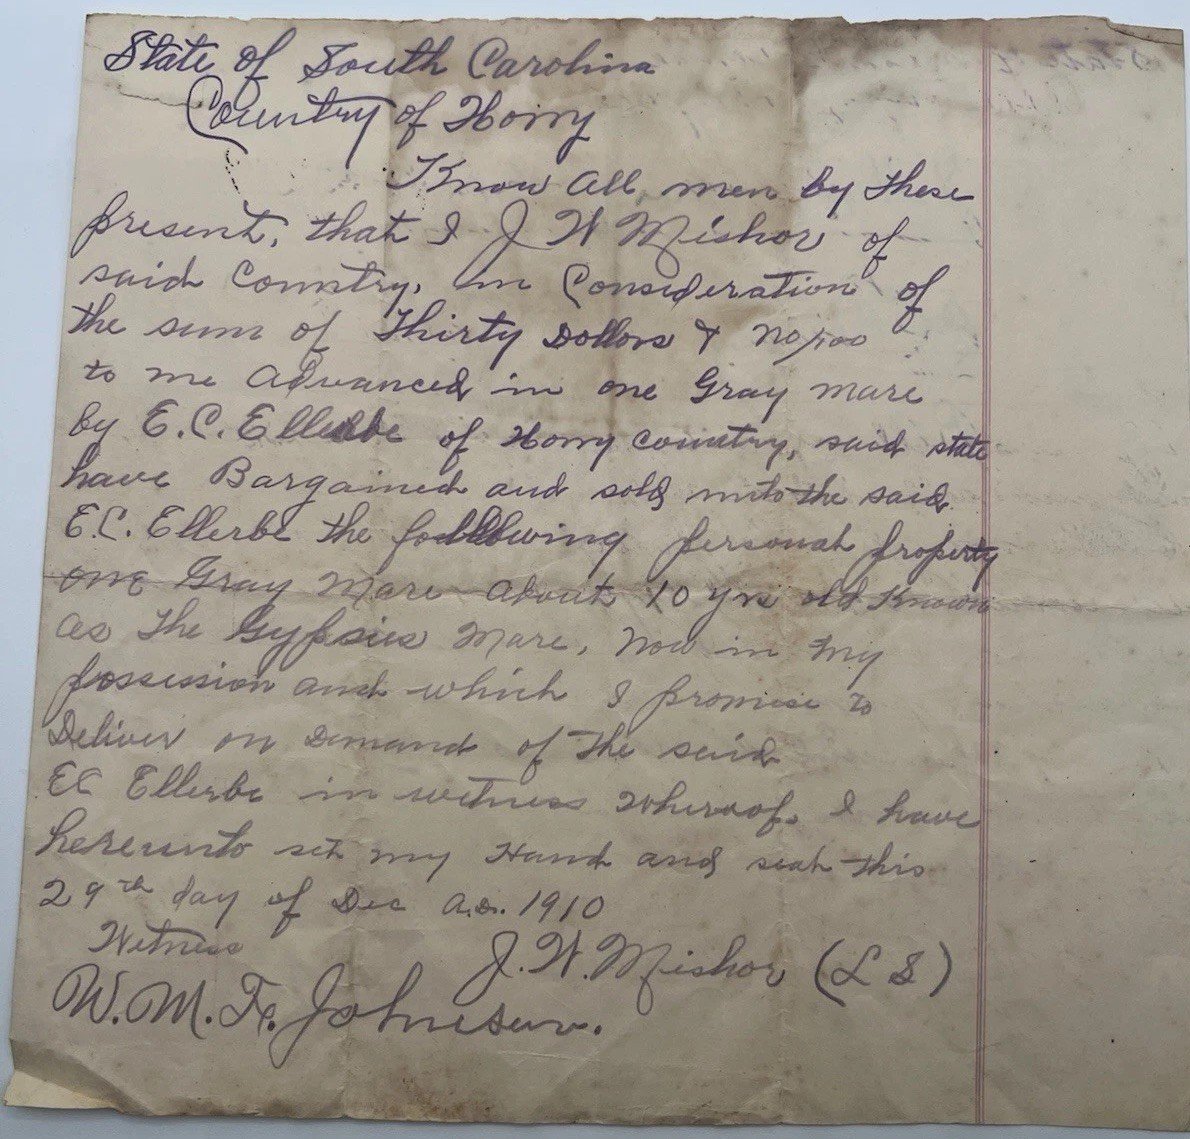 State of South Carolina
Country of Horry
Know all men by these
present, that I J W Mishor of
said Country, in Consideration of
the sum of Thirty Dollors & no/100
to me advanced in one Gray mare
by E.C. Ellerbe of Horry country, said state
have Bargained and sold unto the said
E.C. Ellerbe the following personal property
one Gray Mare about 10 yrs old Known
as The Gypsies Mare, now in my
possession and which I promise to
Deliver on Demand of the said
EC Ellerbe in witness whereof. I have
hereunto set my Hand and seal this
29th day of Dec A.D. 1910
Witness J.W. Mishor (L S)
W.M. F. Johnson.